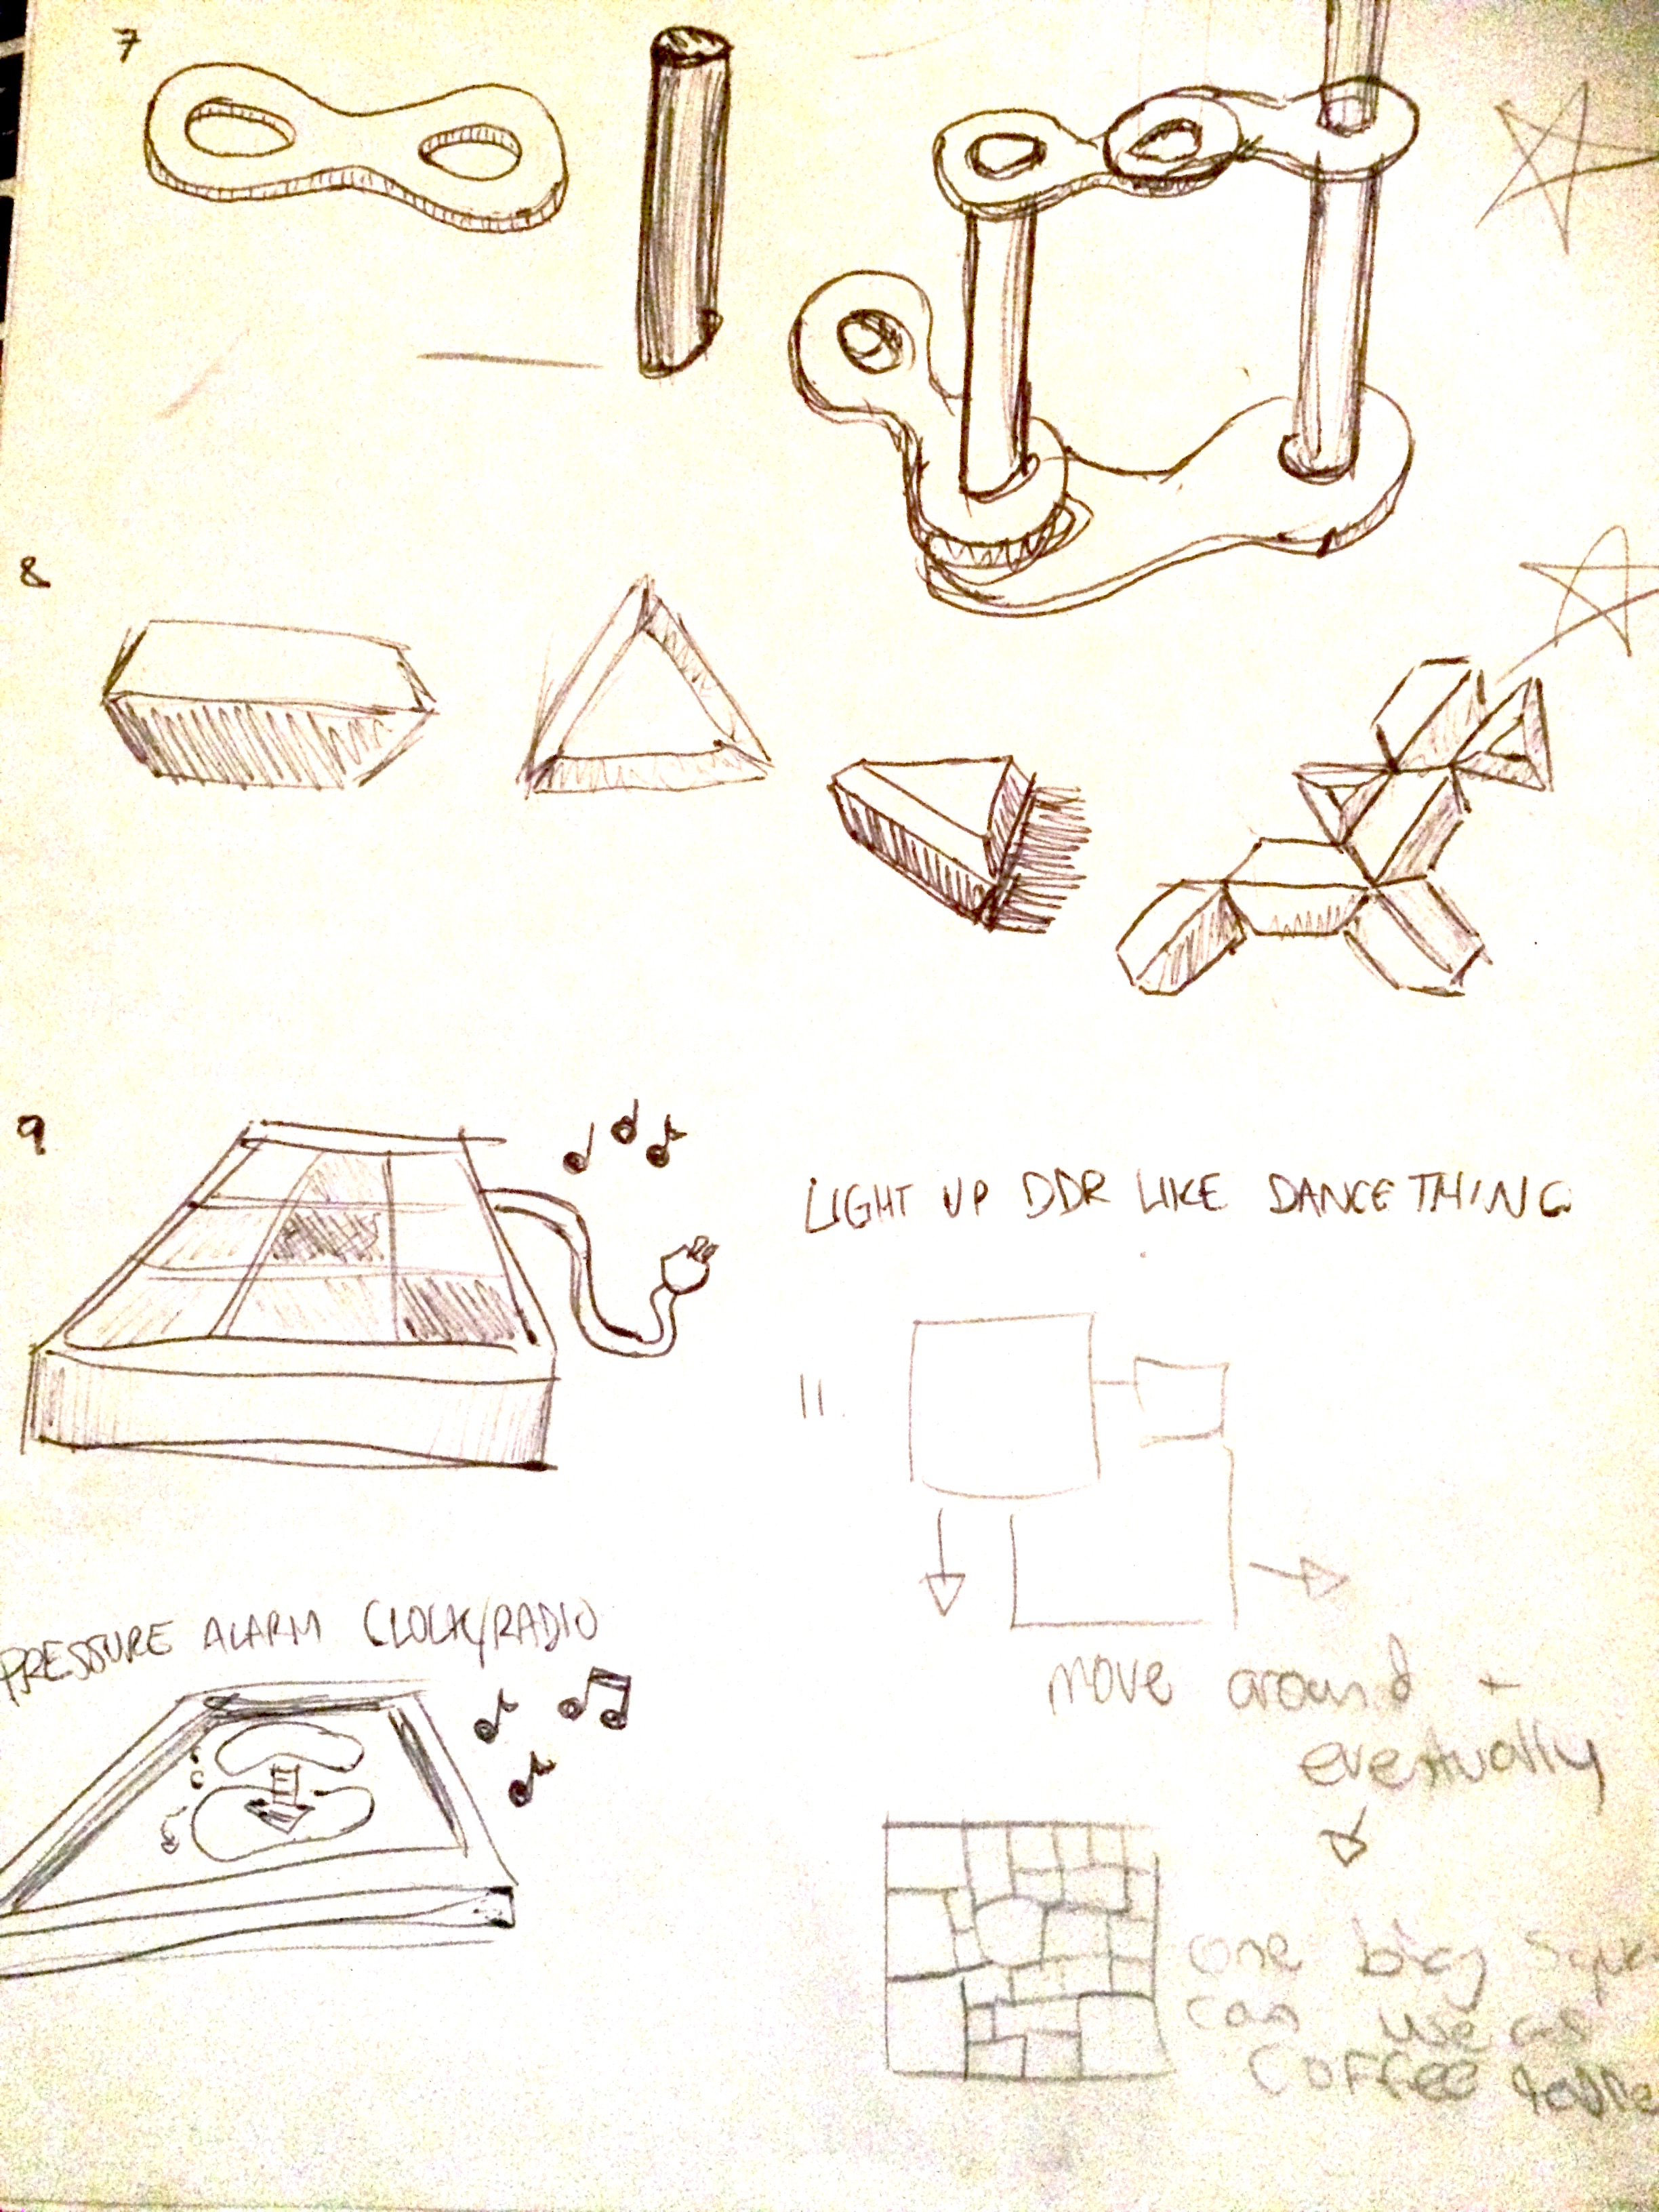 7
8
9
LIGHT UP DDR LIKE DANCE THING
11
PRESSURE ALARM CLOCK/RADIO
move around +
eventually
one big
can use as
coffee table